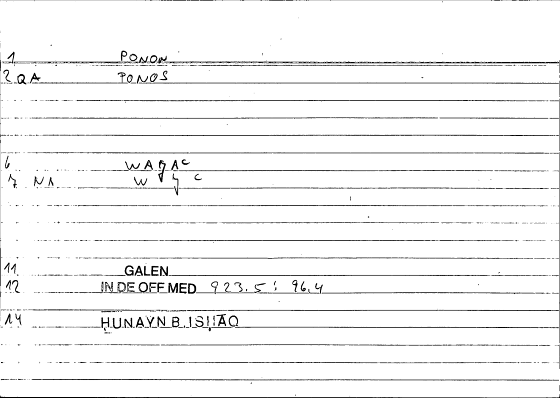 1 PONON
2 QA PONOS
6 WAGAC
7 NA W G C
11 GALEN
12 IN DE OFF MED 923.5 : 96.4
14 ḤUNAYN B. ISḤĀQ